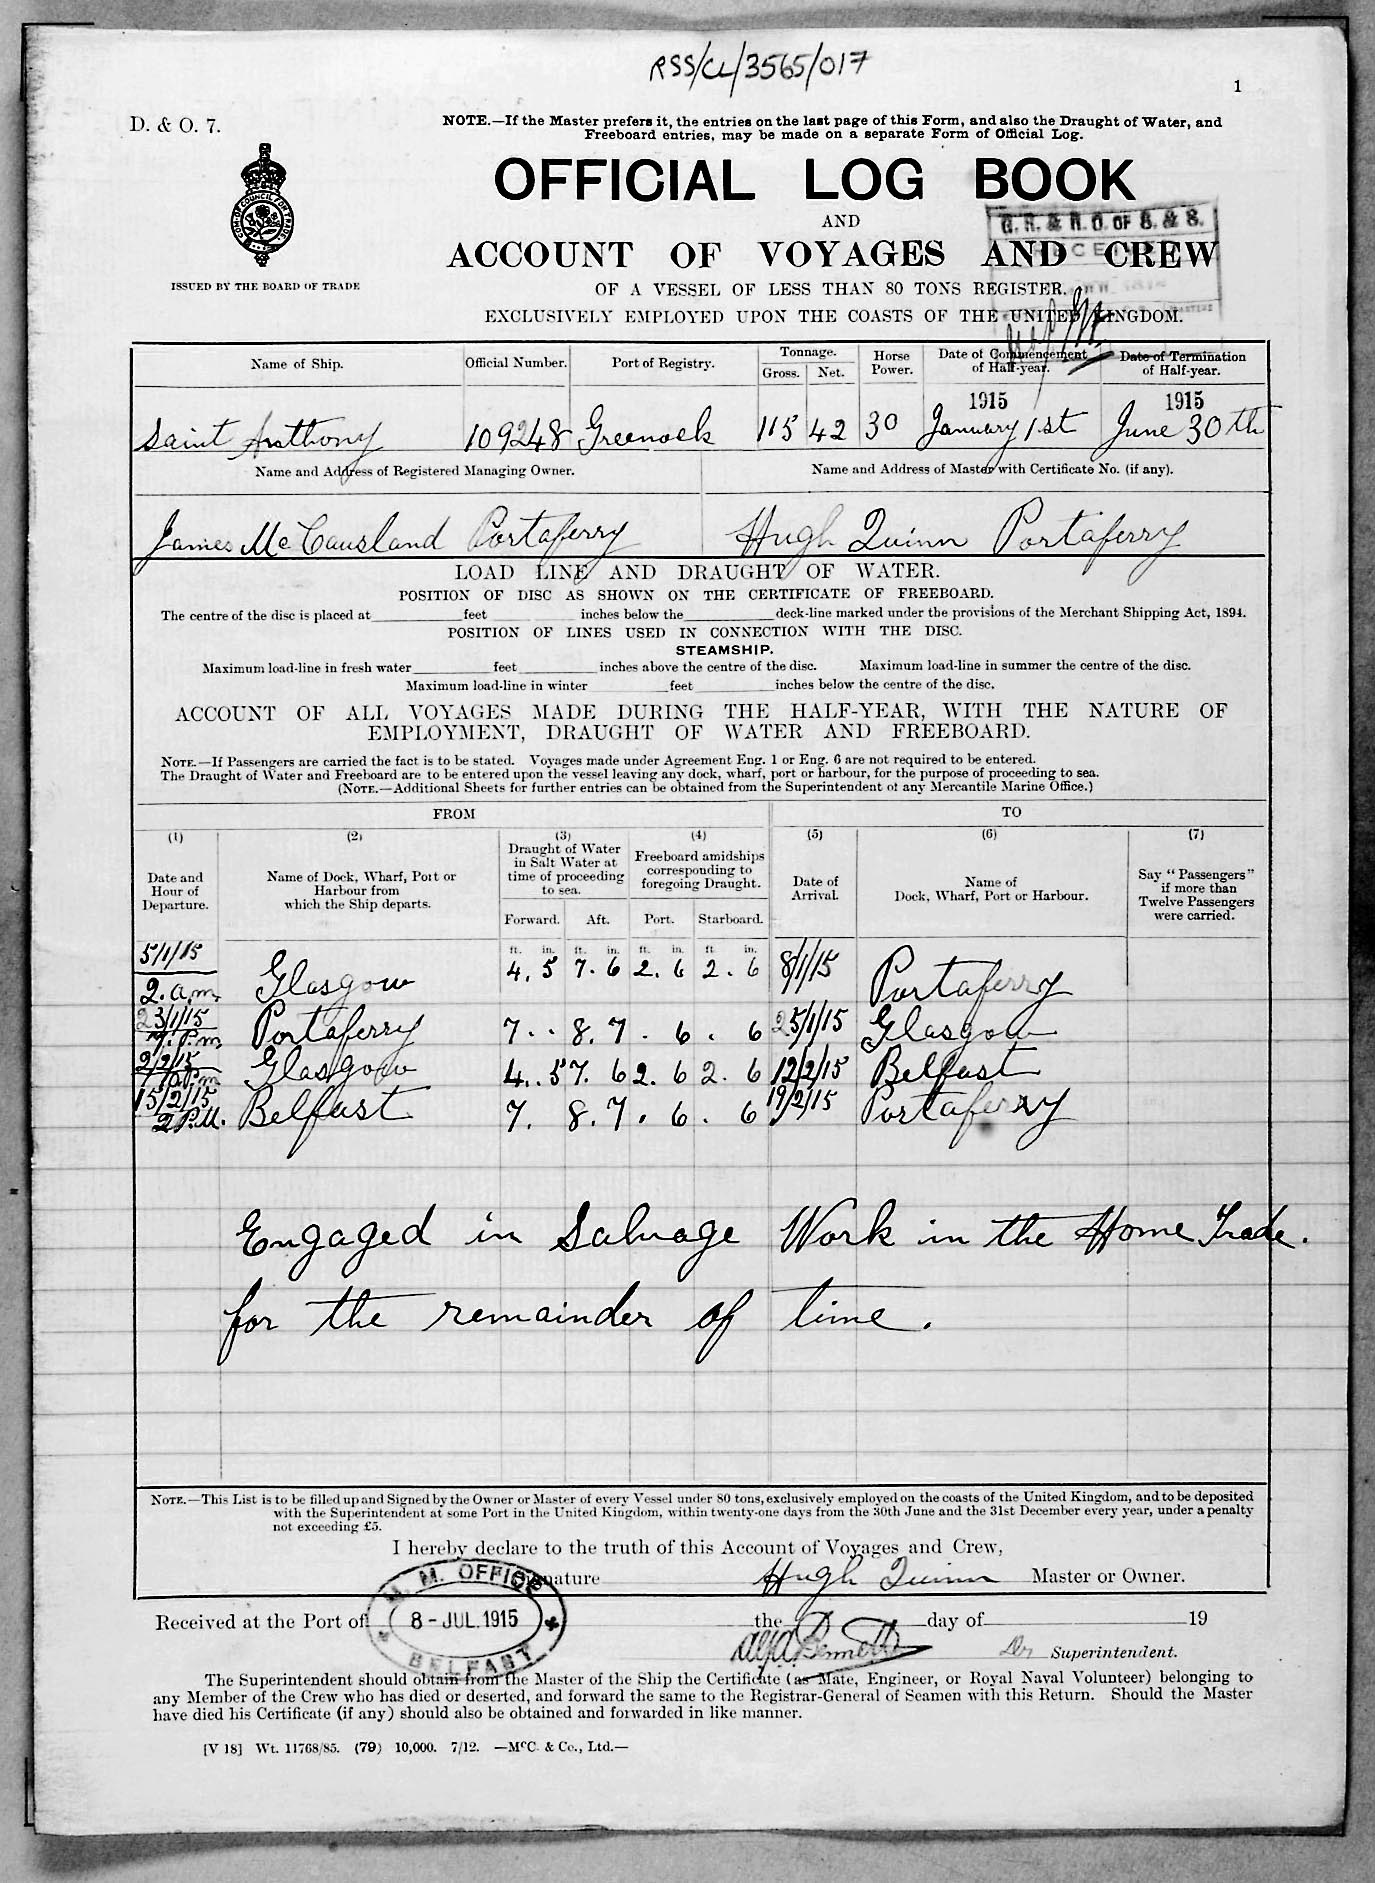 RSS/CL/3565/017
1
D. & O. 7.
NOTE.—If the Master prefers it, the entries on the last page of this Form, and also the Draught of Water, and
Freeboard entries, may be made on a separate Form of Official Log.
OFFICIAL LOG BOOK
AND
G. R. & R. O. OF S. & S.
ACCOUNT OF VOYAGES AND CREW
ISSUED BY THE BOARD OF TRADE
OF A VESSEL OF LESS THAN 80 TONS REGISTER,
EXCLUSIVELY EMPLOYED UPON THE COASTS OF THE UNITED KINGDOM.
Name of Ship. Official Number. Port of Registry. Tonnage. Gross. Net. Horse Power. Date of Commencement of Half-year. Date of Termination of Half-year.
1915 1915
Saint Anthony 109248 Greenock 115 42 30 January 1st June 30th
Name and Address of Registered Managing Owner. Name and Address of Master with Certificate No. (if any).
James McCausland Portaferry Hugh Quinn Portaferry
LOAD LINE AND DRAUGHT OF WATER.
POSITION OF DISC AS SHOWN ON THE CERTIFICATE OF FREEBOARD.
The centre of the disc is placed at feet inches below the deck-line marked under the provisions of the Merchant Shipping Act, 1894.
POSITION OF LINES USED IN CONNECTION WITH THE DISC.
STEAMSHIP.
Maximum load-line in fresh water feet inches above the centre of the disc. Maximum load-line in summer the centre of the disc.
Maximum load-line in winter feet inches below the centre of the disc.
ACCOUNT OF ALL VOYAGES MADE DURING THE HALF-YEAR, WITH THE NATURE OF
EMPLOYMENT, DRAUGHT OF WATER AND FREEBOARD.
NOTE.—If Passengers are carried the fact is to be stated. Voyages made under Agreement Eng. 1 or Eng. 6 are not required to be entered.
The Draught of Water and Freeboard are to be entered upon the vessel leaving any dock, wharf, port or harbour, for the purpose of proceeding to sea.
(NOTE.—Additional Sheets for further entries can be obtained from the Superintendent of any Mercantile Marine Office.)
FROM TO
(1) (2) (3) (4) (5) (6) (7)
Date and Hour of Departure. Name of Dock, Wharf, Port or Harbour from which the Ship departs. Draught of Water in Salt Water at time of proceeding to sea. Freeboard amidships corresponding to foregoing Draught. Date of Arrival. Name of Dock, Wharf, Port or Harbour. Say "Passengers" if more than Twelve Passengers were carried.
Forward. Aft. Port. Starboard.
ft. in. ft. in. ft. in. ft. in.
5/1/15 2. a.m. Glasgow 4. 5 7. 6 2. 6 2. 6 8/1/15 Portaferry
23/1/15 P.m. Portaferry 7. . 8. 7 . 6 . 6 25/1/15 Glasgow
2/2/15 P.m Glasgow 4. . 5 7. 6 2. 6 2. 6 12/2/15 Belfast
15/2/15 2 P.M. Belfast 7. 8. 7 . 6 . 6 19/2/15 Portaferry
Engaged in Salvage Work in the Home Trade.
for the remainder of time.
NOTE.—This List is to be filled up and Signed by the Owner or Master of every Vessel under 80 tons, exclusively employed on the coasts of the United Kingdom, and to be deposited
with the Superintendent at some Port in the United Kingdom, within twenty-one days from the 30th June and the 31st December every year, under a penalty
not exceeding £5.
I hereby declare to the truth of this Account of Voyages and Crew,
Signature Hugh Quinn Master or Owner.
M. M. OFFICE
8 - JUL. 1915
BELFAST
Received at the Port of the day of 19
Bennett Superintendent.
The Superintendent should obtain from the Master of the Ship the Certificate (as Mate, Engineer, or Royal Naval Volunteer) belonging to
any Member of the Crew who has died or deserted, and forward the same to the Registrar-General of Seamen with this Return. Should the Master
have died his Certificate (if any) should also be obtained and forwarded in like manner.
[V 18] Wt. 11768/85. (79) 10,000. 7/12. —McC. & Co., Ltd.—